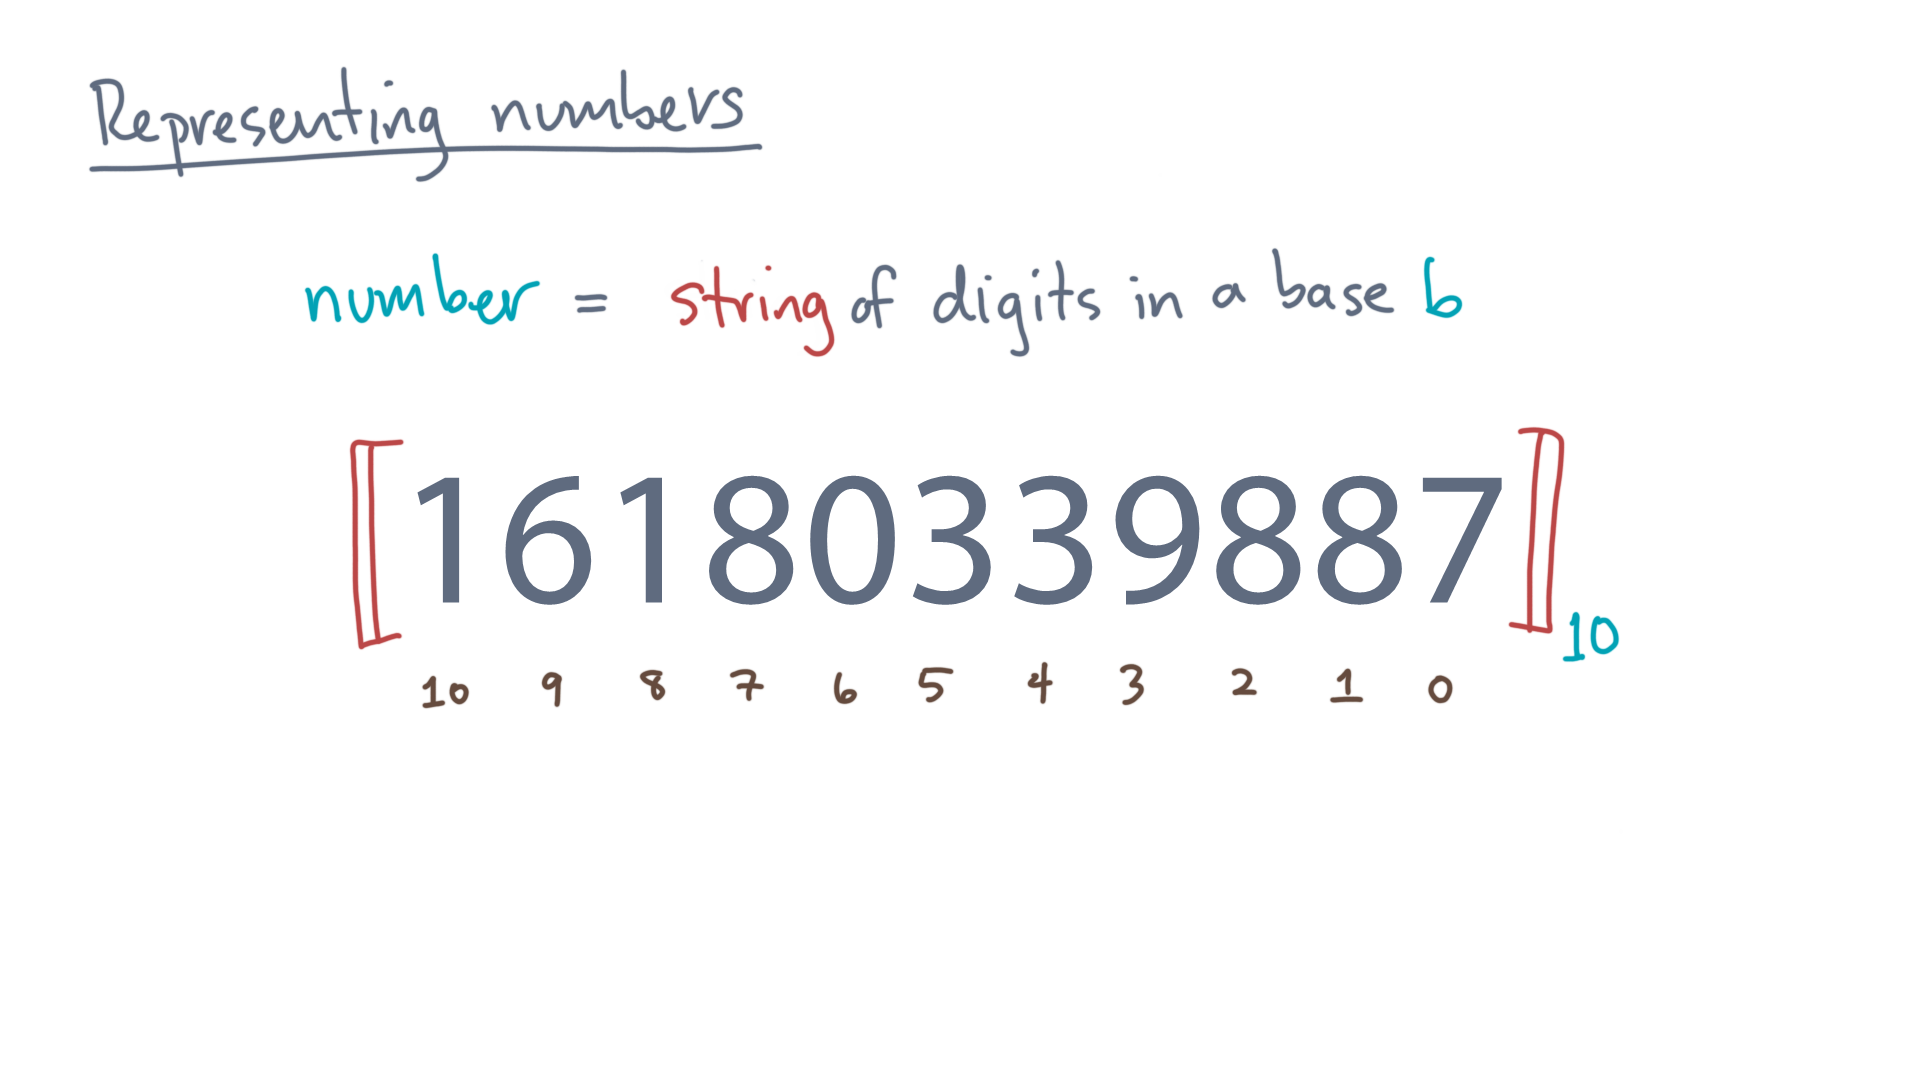 Representing numbers
number = string of digits in a base b
[[16180339887]]10
10 9 8 7 6 5 4 3 2 1 0